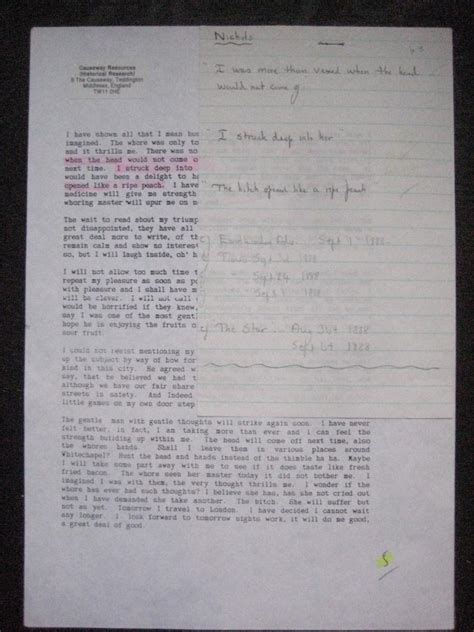 Causeway Resources
(Historical Research)
8 The Causeway, Teddington
Middlesex, England
TW11 0HE
I have shown all that I mean bus
imagined. The whore was only to
and it thrills me. There was no
when the head would not come o
next time. I struck deep into
would have been a delight to ha
opened like a ripe peach. I have
medicine will give me strength
whoring master will spur me on no
The wait to read about my triump
not disappointed, they have all
great deal more to write, of th
remain calm and show no interest
so, but I will laugh inside, oh' h
I will not allow too much time t
repeat my pleasure as soon as po
with pleasure and I shall have m
will be clever. I will not call
would be horrified if they knew,
say I was one of the most gentl
hope he is enjoying the fruits o
sour fruit.
I could not resist mentioning my
up the subject by way of how for
kind in this city. He agreed w
say, that he believed we had t
although we have our fair share
streets is safety. And Indeed
little games on my own door step
The gentle man with gentle thoughts will strike again soon. I have never
felt better, in fact, I am taking more than ever and I can feel the
strength building up within me. The head will come off next time, also
the whores hands. Shall I leave them in various places around
Whitechapel? Hunt the head and hands instead of the thimble ha ha. Maybe
I will take some part away with me to see if it does taste like fresh
fried bacon. The whore seen her master today it did not bother me. I
imagined I was with them, the very thought thrills me. I wonder if the
whore has ever had such thoughts? I believe she has, has she not cried out
when I have demanded she take another. The bitch. She will suffer but
not as yet. Tomorrow I travel to London. I have decided I cannot wait
any longer. I look forward to tomorrow nights work, it will do me good,
a great deal of good.
Nichols
"I was more than vexed when the head
would not come
"I struck deep into her"
"The bitch opened like a ripe peach
Sept 1888
Times Sept 1st 1888
Sept 24 1888
Sept 1888
The Star 1888
Sept 1888
5